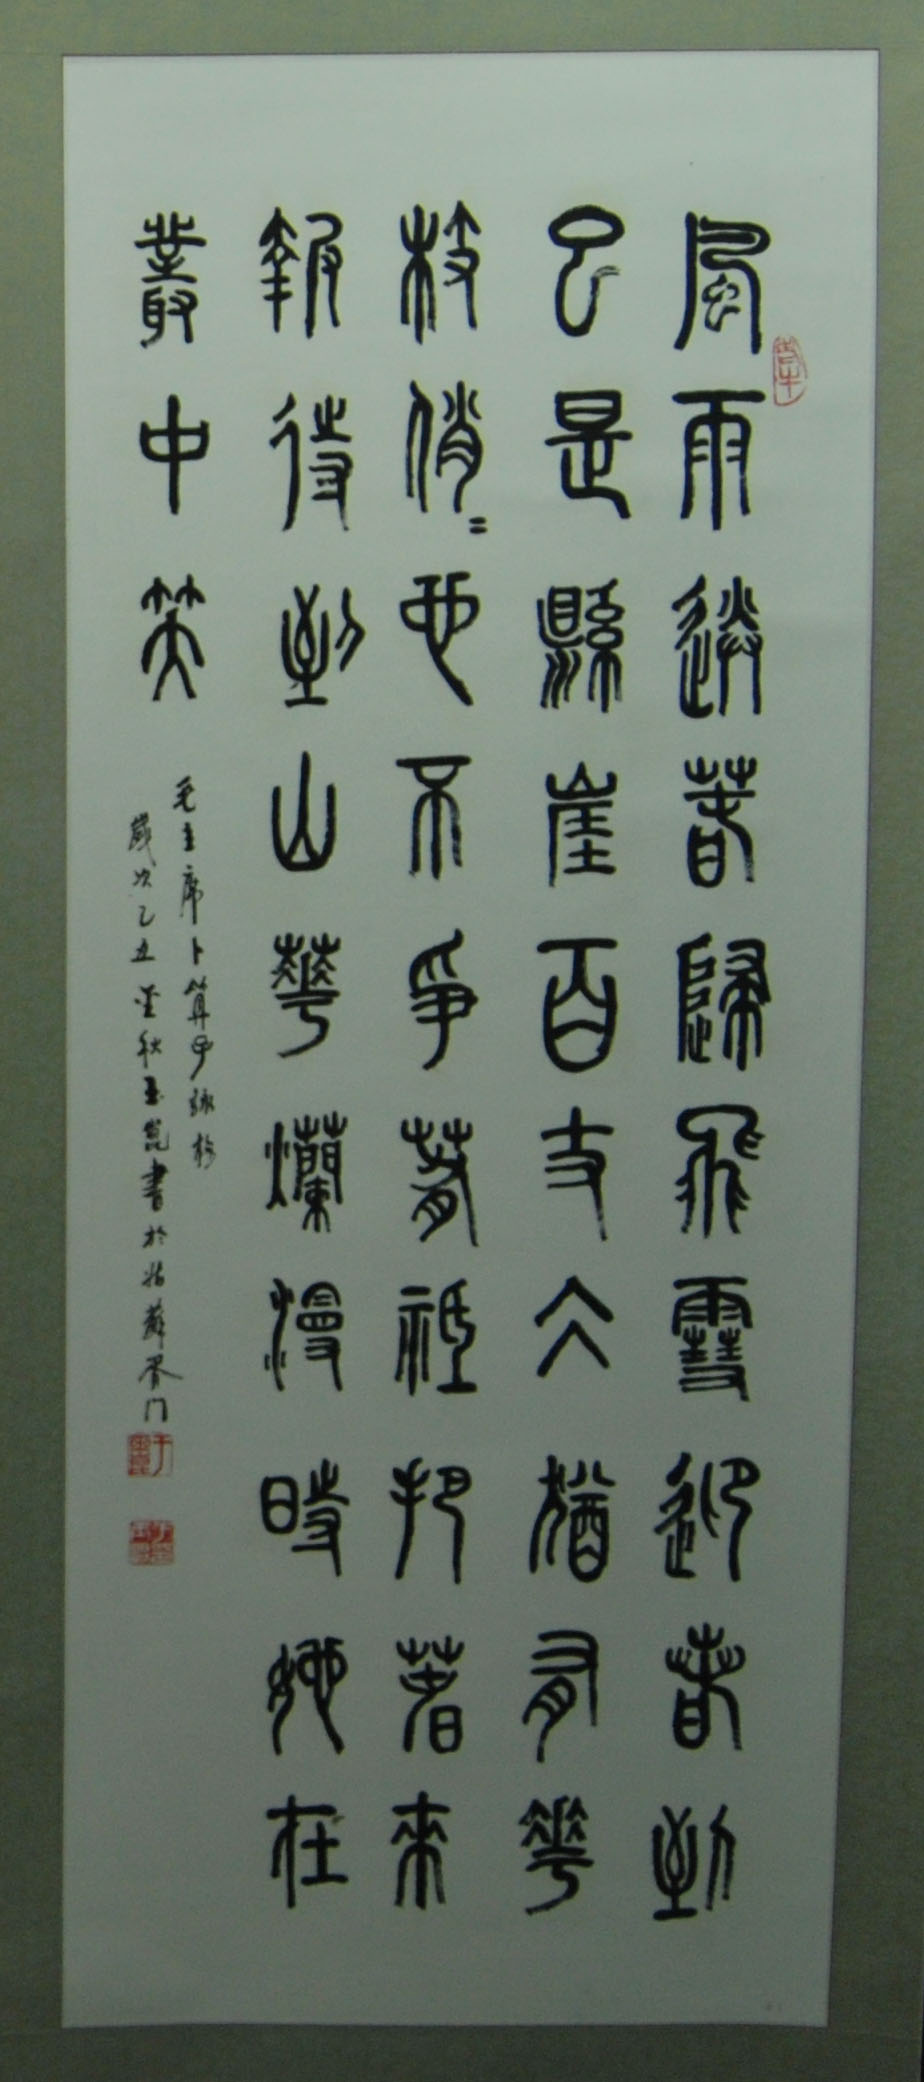 風雨送春歸飛雪迎春到
已是縣崖百丈仌猶有華
枝俏〻也不爭春祇把春來
報待到山華爛漫時她在
叢中笑
毛主席卜算子詠梅
歲次乙丑金秋玉崑書於姑蘇門